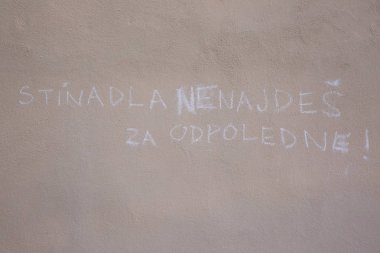 STÍNADLA NENAJDEŠ
ZA ODPOLEDNE!